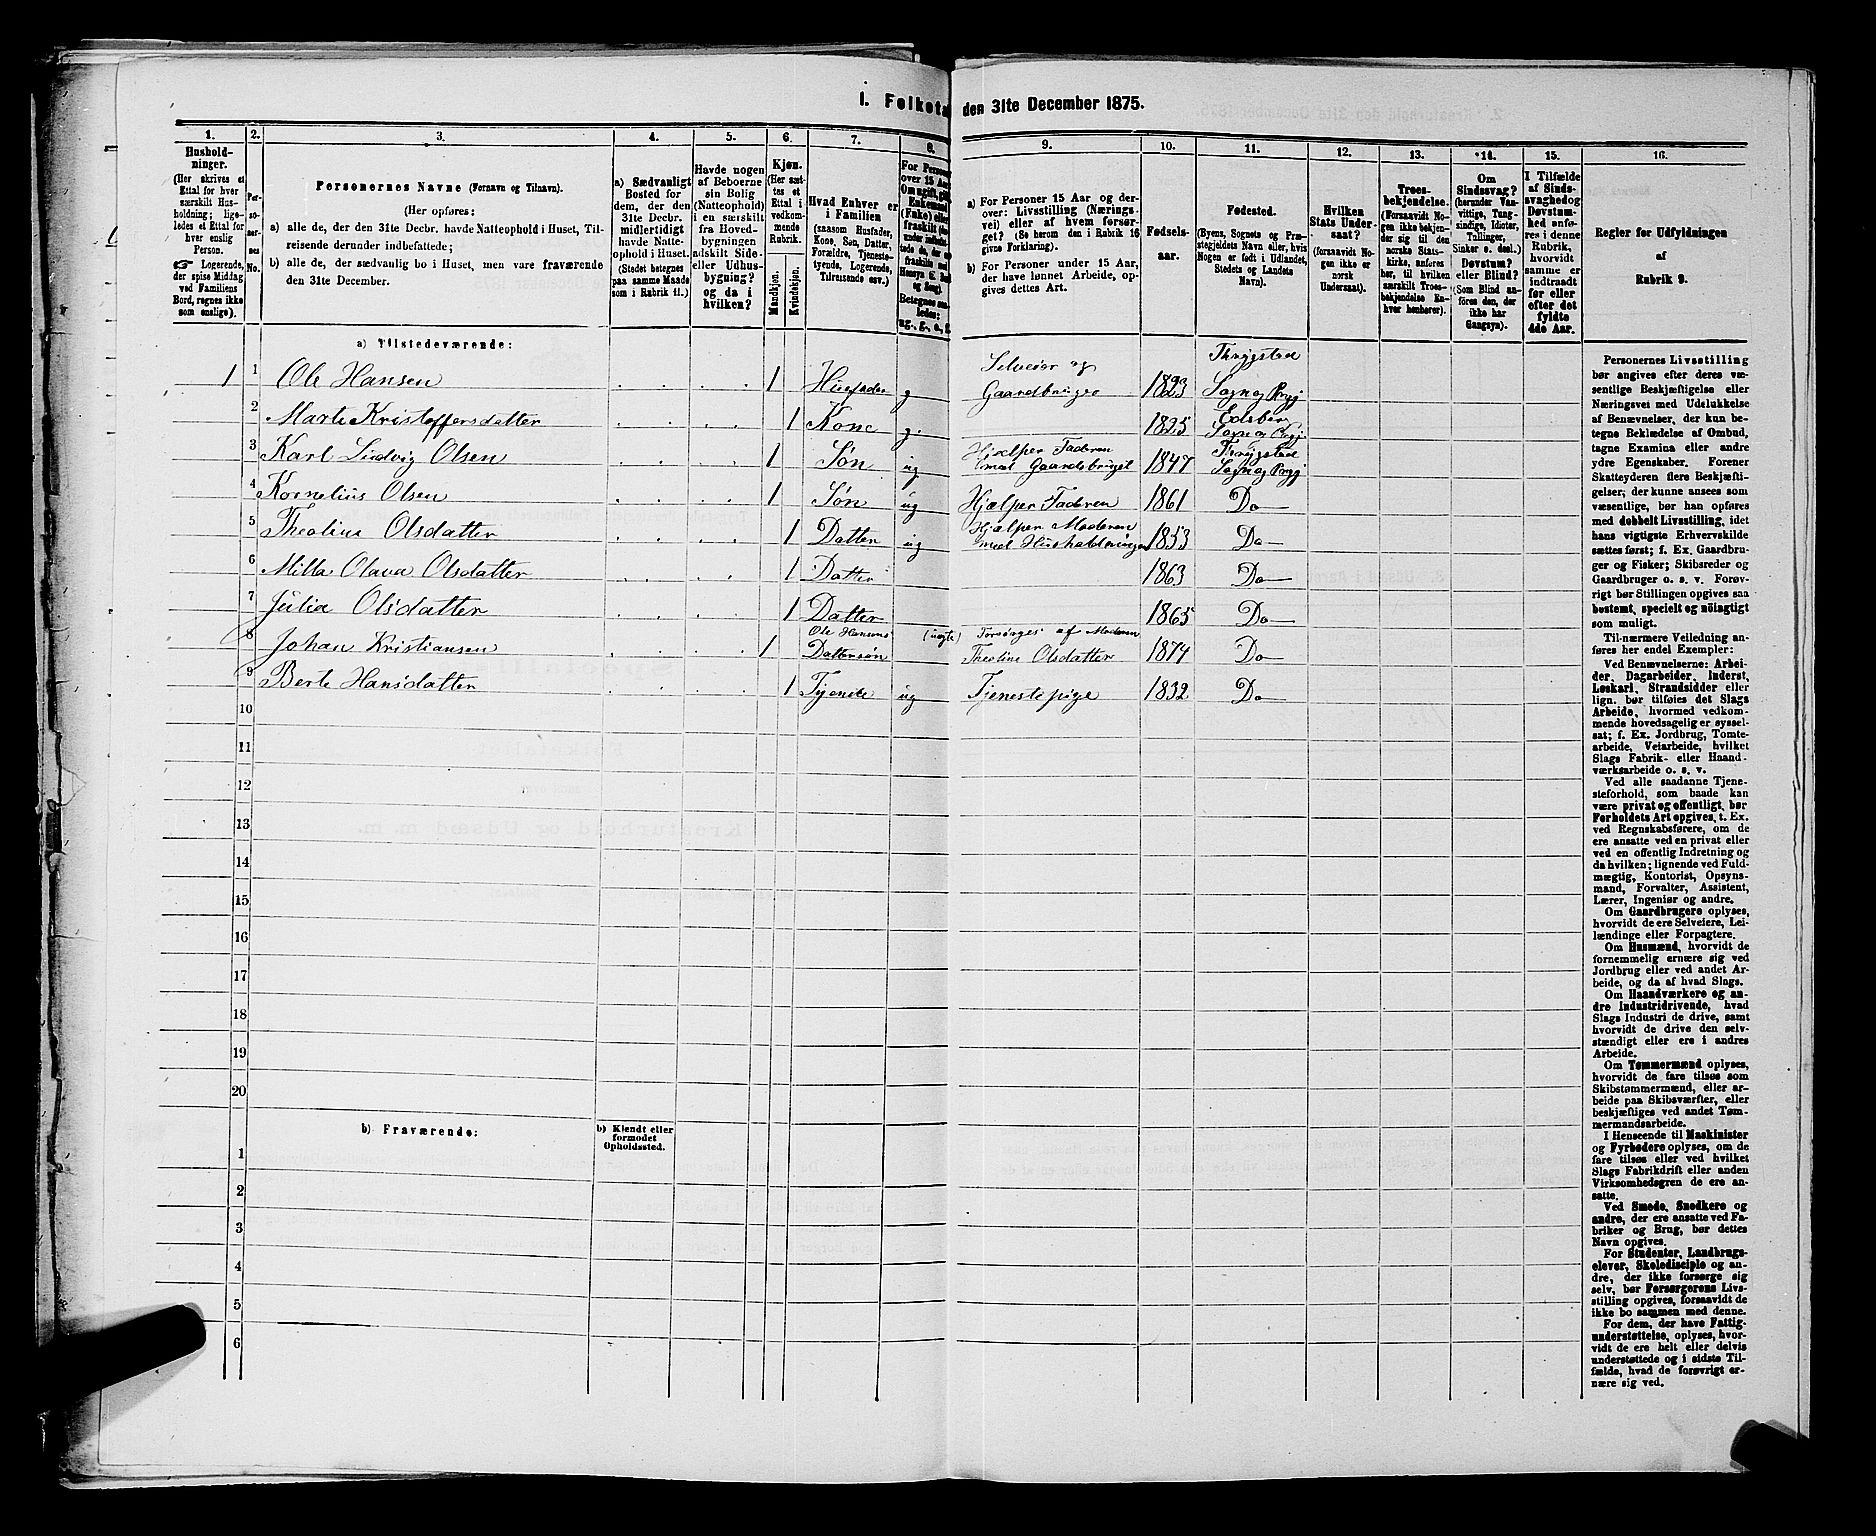 1. Folketal den 31te December 1875.
1. 2. 3. 4. 5. 6. 7. 8. 9. 10. 11. 12. 13. 14. 15. 16.
Husholdninger.
(Her skrives et
Ettal for hver
særskilt Husholdning; ligeledes et Ettal for
hver enslig
Person.
☞ Logerende,
der spise Middag
ved Familiens
Bord, regnes ikke
som enslige).
Personernes No.
Personernes Navne (Fornavn og Tilnavn).
(Her opføres:
a) alle de, der den 31te Decbr. havde Natteophold i Huset, Tilreisende derunder indbefattede;
b) alle de, der sædvanlig bo i Huset, men vare fraværende
den 31te December.
a) Sædvanligt
Bosted for
dem, der den
31te Decbr.
midlertidigt
havde Natteophold i Huset.
(Stedet betegnes
paa samme Maade
som i Rubrik 11.)
Havde nogen
af Beboerne
sin Bolig
(Natteophold)
i en særskilt
fra Hovedbygningen
adskilt Side-
eller Udhusbygning?
og da i
hvilken?
Kjøn.
(Her sættes et
Ettal i
vedkommende
Rubrik.
Mandkjøn.
Kvindekjøn.
Hvad Enhver er
i Familien
(saasom Husfader,
Kone, Søn, Datter,
Forældre, Tjenestetyende, Logerende,
Tilreisende osv.)
a) For Personer 15 Aar og derover: Livsstilling (Næringsvei) eller af hvem forsørget? (Se herom den i Rubrik 16
givne Forklaring).
b) For Personer under 15 Aar,
der have lønnet Arbeide, opgives dettes Art.
Fødselsaar.
Fødested.
(Byens, Sognets og Præstegjeldets Navn eller, hvis
Nogen er født i Udlandet,
Stedets og Landets
Navn).
Hvilken
Stats Undersaat?
(forsaavidt Nogen ikke er
norsk
Undersaat).
Troesbekjendelse.
(Forsaavidt Nogen ikke bekjender sig til den
norske Statskirke, anføres
her, til hvilken
særskilt Troesbekjendelse Enhver henhører).
Om
Sindssvag?
(herunder Vanvittige, Tungsindige, Idioter,
Tullinger,
Sinker o. desl.)
Døvstum?
eller Blind?
(Som Blind anføres den, der
ikke har
Gangsyn).
I Tilfælde
af Sindssvaghed og
Døvstumhed anføres i denne
Rubrik,
hvorvidt
samme er
indtraadt
før eller
efter det
fyldte
4de Aar.
Regler for Udfyldningen
af
Rubrik 9.
a) Tilstedeværende:
1 1 Ole Hansen 1 Husfader g Selveier og Gaardbruger 1823 Thrygstad Sogn og Prgj
2 Marte Kristoffersdatter 1 Kone g. 1825 Eidsberg Sogn og Prgj
3 Karl Ludvig Olsen 1 Søn ug Hjælper Faderen med Gaardsbruget 1847 Thrygstad Sogn og Prgj
4 Kornelius Olsen 1 Søn ug Hjælper Faderen 1861 Do
5 Theoline Olsdatter 1 Datter ug Hjælper Moderen med Husholdningen 1853 Do
6 Milla Olava Olsdatter 1 Datter 1863 Do
7 Julia Olsdatter 1 Datter 1865 Do
8 Johan Kristiansen 1 Ole Hansens Dattersøn (uægte) Forsørges af Moderen Theoline Olsdatter 1874 Do
9 Berte Hansdatter 1 Tjenede ug Tjenestepige 1832 Do
10
11
12
13
14
15
16
17
18
19
20
b) Fraværende:
b) Kjendt eller
formodet
Opholdssted.
1
2
3
4
5
6
Personernes Livsstilling
bør angives efter deres væsentlige Beskjæftigelse eller
Næringsvei med Udelukkelse
af Benævnelser, der kun betegne Beklædelse af Ombud,
tagne Examina eller andre
ydre Egenskaber. Forener
Skatteyderen flere Beskjæftigelser, der kunne ansees som
væsentlige, bør han opføres
med dobbelt Livsstilling, idet
hans vigtigste Erhvervskilde
sættes først; f. Ex. Gaardbruger og Fisker; Skibsreder og
Gaardbruger o. s. v. Forøvrigt bør Stillingen opgives saa
bestemt, specielt og nöiagtigt
som muligt.
Til nærmere Veiledning anføres her endel Exempler:
Ved Benævnelserne: Arbeider, Dagarbeider, Inderst,
Løskarl, Strandsidder eller
lign. bør tilføies det Slags
Arbeide, hvormed vedkommende hovedsagelig er sysselsat; f. Ex. Jordbrug, Tomtearbeide, Veiarbeide, hvilket
Slags Fabrik- eller Haandværksarbeide o. s. v.
Ved alle saadanne Tjenesteforhold, som baade kan
være privat og offentligt, bør
Forholdets Art opgives, t. Ex.
ved Regnskabsførere, om de
ere ansatte ved en privat eller
ved en offentlig Indretning og
da hvilken; lignende ved Fuldmægtig, Kontorist, Opsynsmand, Forvalter, Assistent,
Lærer, Ingeniør og andre.
Om Gaardbrugere oplyses,
hvorvidt de ere Selveiere, Leilændinge eller Forpagtere.
Om Husmænd, hvorvidt de
fornemmelig ernære sig ved
Jordbrug eller ved andet Arbeide, og da af hvad Slags.
Om Haandværkere og andre Industridrivende, hvad
Slags Industri de drive, samt
hvorvidt de drive den selvstændigt eller ere i andres
Arbeide.
Om Tømmermænd oplyses,
hvorvidt de fare tilsøs som
Skibstømmermænd, eller arbeide paa Skibsværfter, eller
beskjæftiges ved andet Tømmermandsarbeide.
I Henseende til Maskinister
og Fyrbødere oplyses, om de
fare tilsøs eller ved hvilket
Slags Fabrikdrift eller anden
Virksomhedsgren de ere ansatte.
Ved Smede, Snedkere og
andre, der ere ansatte ved Fabriker og Brug, bør dettes
Navn opgives.
For Studenter, Landbrugselever, Skoledisciple og andre, der ikke forsørge sig
selv, bør Forsørgerens Livsstilling opgives, forsaavidt de
ikke bo sammen med denne.
For dem, der have Fattigunderstøttelse, oplyses, hvorvidt de ere helt eller delvis
understøttede og i sidste Tilfælde, hvad de forøvrigt ernære sig ved.